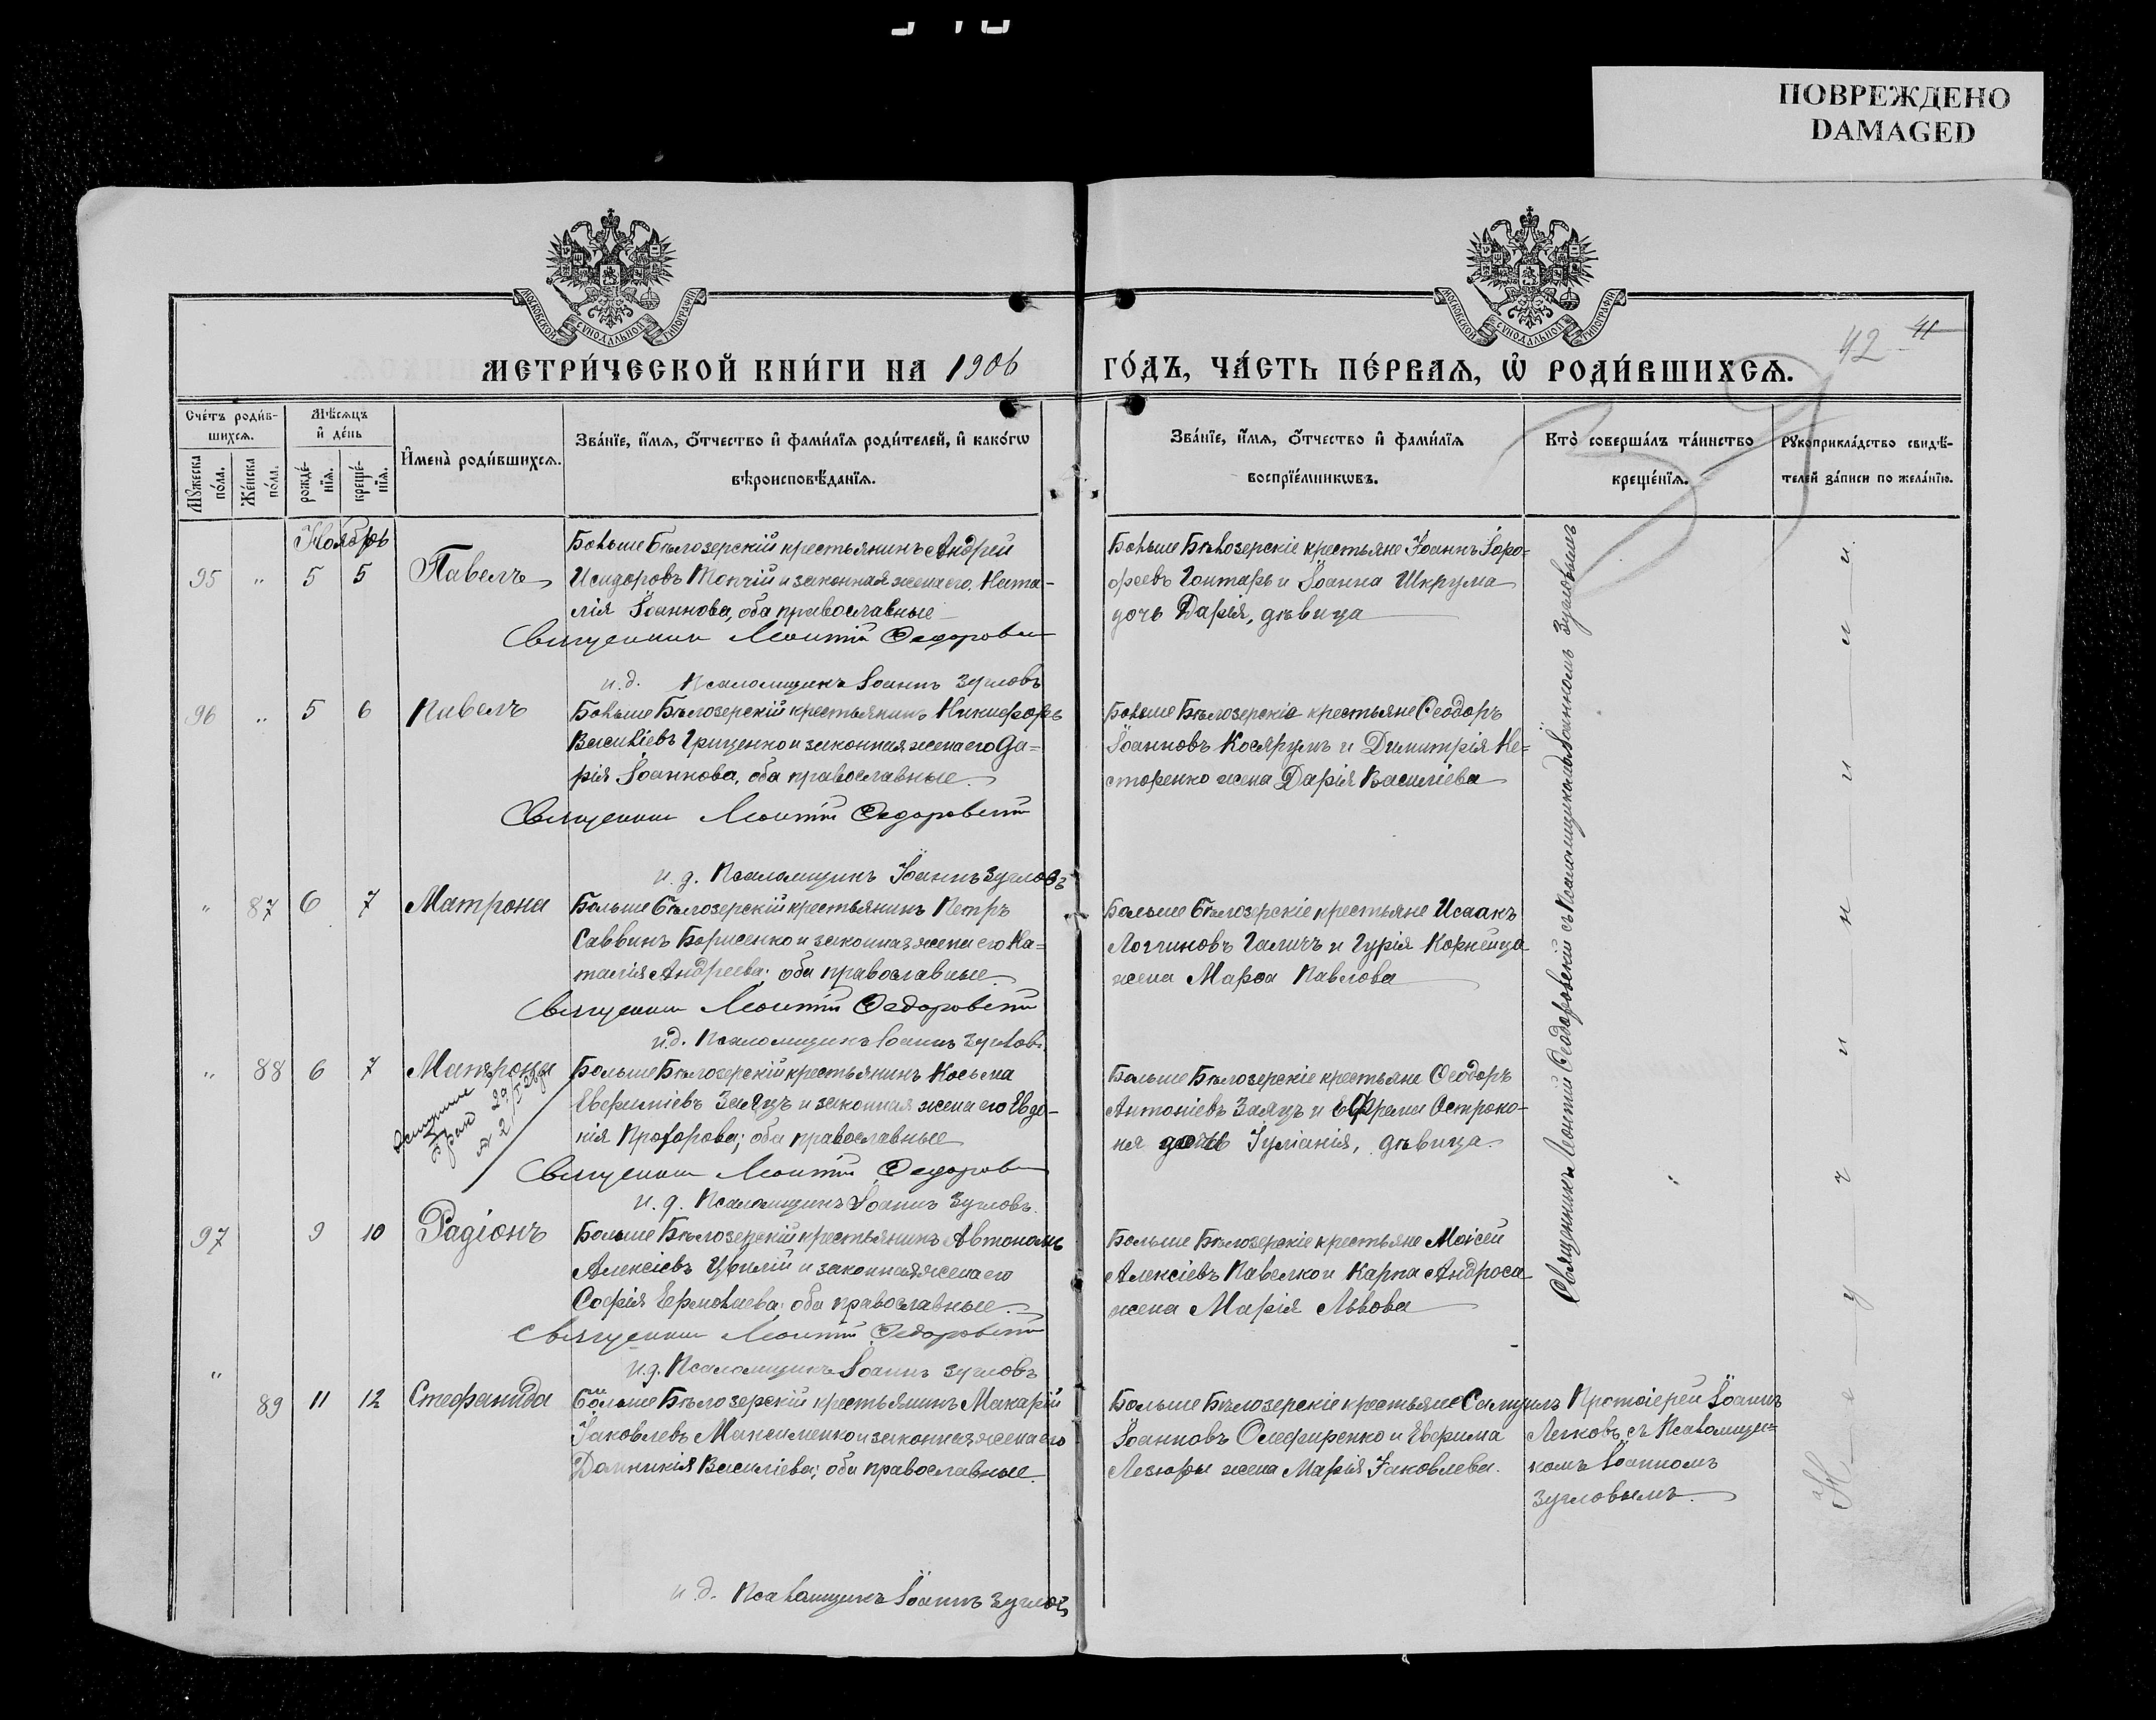 ПОВРЕЖДЕНО
DAMAGED
МОСКОВСКОЙ СѴНОДАЛЬНОЙ ТИПОГРАФІИ
МОСКОВСКОЙ СѴНОДАЛЬНОЙ ТИПОГРАФІИ
42 41
МЕТРИ́ЧЕСКОЙ КНИ́ГИ НА 1906 ГО́ДЪ, ЧА́СТЬ ПЕ́РВАЯ, Ѡ РОДИ́ВШИХСЯ.
Сче́тъ роди́в-
шихся.
Мꙋ́жеска
по́ла.
Же́нска
по́ла.
Мѣ́сяцъ
и҆ де́нь
рожде́-
нїя.
креще́-
нїя.
И҆мена̀ роди́вшихся.
Зва́нїе, и҆́мя, ѻ҆́тчество и҆ фами́лїя роди́телей, и҆ како́гѡ
вѣроисповѣ́данїя.
Зва́нїе, и҆́мя, ѻ҆́тчество и҆ фами́лїя
воспрїе́мникѡвъ.
Кто̀ соверша́лъ та́инство
креще́нїя.
Рꙋкоприкла́дство свидѣ́-
телей за́писи по жела́нїю.
Ноябрь
95 " 5 5 Павелъ
Больше Бѣлозерскій крестьянинъ Андрей
Исидоровъ Топчій и законная жена его Ната-
лія Іоаннова, оба православные
Священникъ Леонтій Федоровскій
и.д. Псаломщика Іоаннъ Зугловъ
Больше Бѣлозерскіе крестьяне Іоаннъ
Гонтарь и Іоанна Шкрума
дочь Дарія, дѣвица
96 " 5 6 Павелъ
Больше Бѣлозерскій крестьянинъ Никифоръ
Василіевъ Гриценко и законная жена его Да-
рія Іоаннова, оба православные
Священникъ Леонтій Федоровскій
и.д. Псаломщикъ Іоаннъ Зугловъ
Больше Бѣлозерскіе крестьяне Ѳеодоръ
Іоанновъ и Димитрія Не-
сторенко жена Дарія Василіева
" 87 6 7 Матрона
Больше Бѣлозерскій крестьянинъ Петръ
Саввинъ Борисенко и законная жена его На-
талія Андреева; оба православные
Священникъ Леонтій Федоровскій
и.д. Псаломщикъ Іоаннъ Зугловъ
Больше Бѣлозерскіе крестьяне Исаакъ
Логгиновъ Галичъ и Гурія Корнейца
жена Марѳа Павлова
" 88 6 7 Матрона
Больше Бѣлозерскій крестьянинъ Косьма
Евфиміевъ Заяцъ и законная жена его Евдо-
кія Прохорова; оба православные
Священникъ Леонтій Федоровскій
и.д. Псаломщикъ Іоаннъ Зугловъ
Больше Бѣлозерскіе крестьяне Ѳеодоръ
Антоніевъ Заяцъ и Ефрема Остроко-
ня дочь Іуліанія, дѣвица
97 9 10 Радіонъ
Больше Бѣлозерскій крестьянинъ Автономъ
Алексіевъ и законная жена его
Софія Ермолаева; оба православные
Священникъ Леонтій Федоровскій
и.д. Псаломщика Іоаннъ Зугловъ
Больше Бѣлозерскіе крестьяне Моісей
Алексіевъ Павелко и Карпа Андроса
жена Марія Львова
Священникъ Леонтій Ѳеодоровскій съ Псаломщикомъ Іоанномъ Зугловымъ
" 89 11 12 Стефанида
Больше Бѣлозерскій крестьянинъ Макарій
Іаковлевъ Максименко и законная жена его
Домникія Василіева; оба православные
и.д. Псаломщика Іоаннъ Зугловъ
Больше Бѣлозерскіе крестьяне Самуилъ
Іоанновъ Олефиренко и Евфима
жена Марія Іаковлева.
Протоіерей Іоаннъ
Легковъ, съ Псаломщи-
комъ Іоанномъ
Зугловымъ